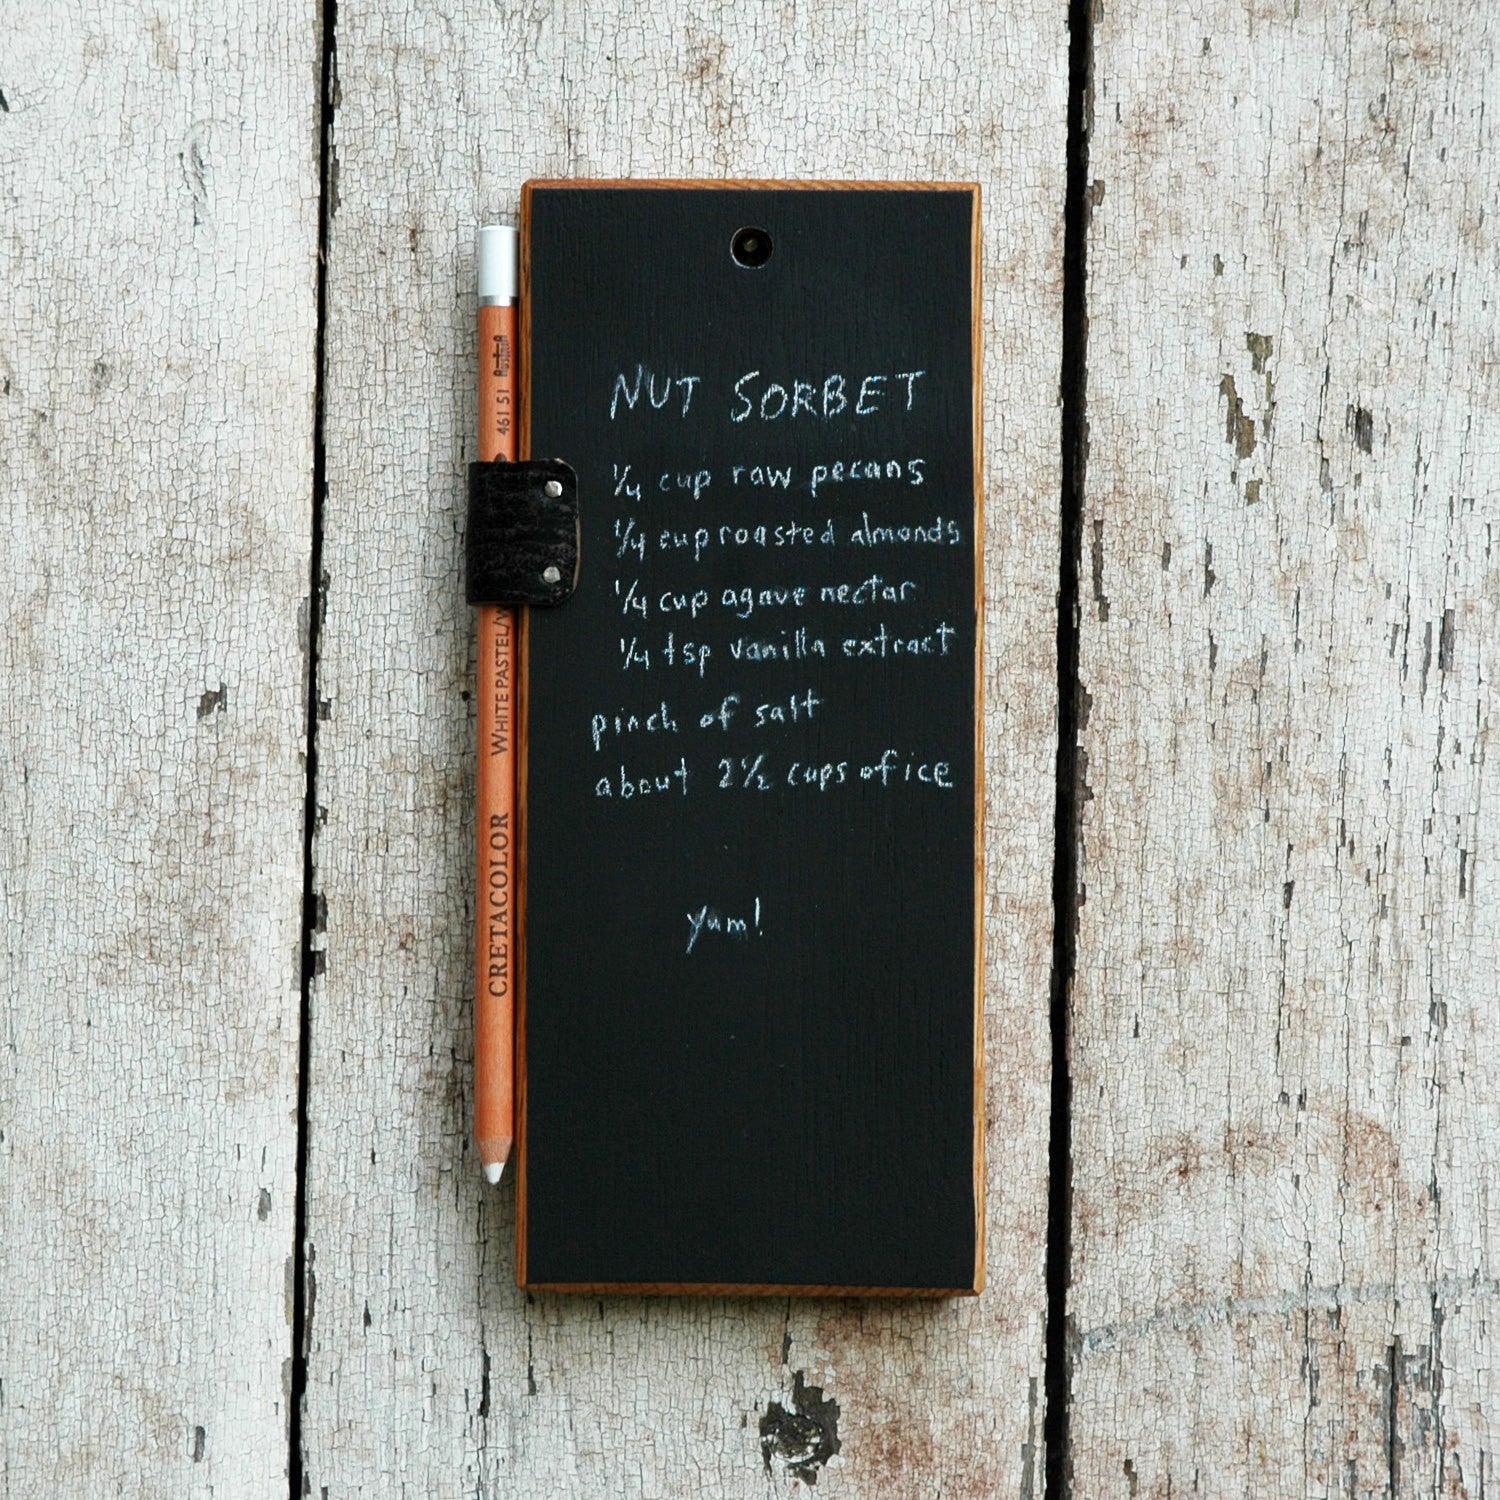 NUT SORBET
¼ cup raw pecans
¼ cup roasted almonds
¼ cup agave nectar
¼ tsp vanilla extract
pinch of salt
about 2½ cups of ice
yum!
CRETACOLOR WHITE PASTEL/W
461 51 AustriA